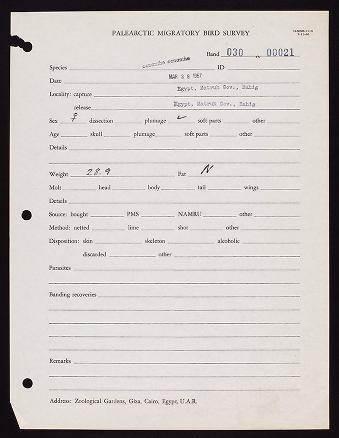 PALEARCTIC MIGRATORY BIRD SURVEY
Band 030 00021
Species oenanthe oenanthe ID
Date MAR 28 1967
Locality: capture Egypt, Matruh Gov., Bahig
release Egypt, Matruh Gov., Bahig
Sex ♀ dissection plumage ✓ soft parts other
Age skull plumage soft parts other
Details
Weight 28.9 Fat N
Molt head body tail wings
Details
Source: bought PMS NAMRU other
Method: netted lime shot other
Disposition: skin skeleton alcoholic
discarded other
Parasites
Banding recoveries
Remarks
Address: Zoological Gardens, Giza, Cairo, Egypt, U.A.R.